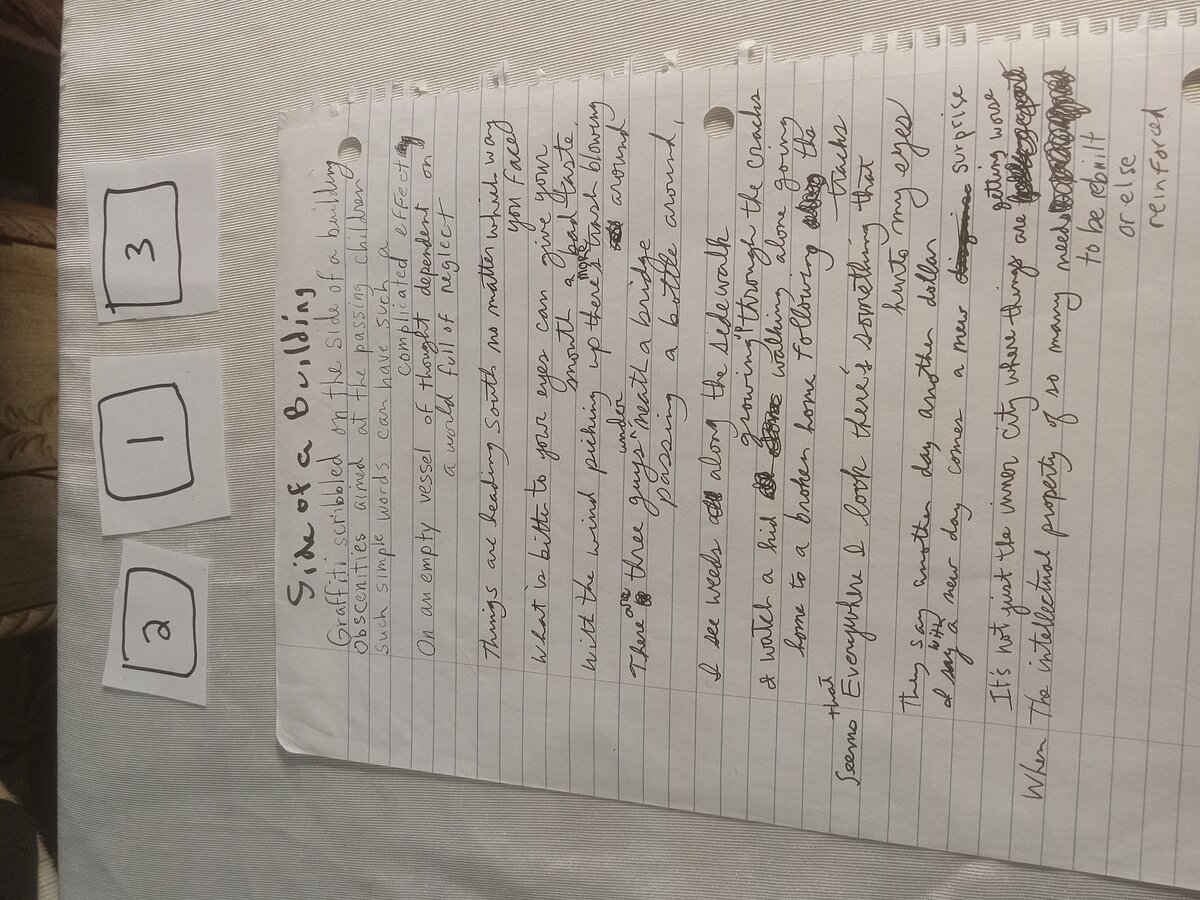 2 1 3
Side of a Building
Graffiti scribbled on the side of a building
Obscenities aimed at the passing children
such simple words can have such a
complicated effect
On an empty vessel of thought dependent on
a world full of neglect
Things are heading south no matter which way
you face
What is bitter to your eyes can give your
mouth a bad taste
With the wind picking up there's more trash blowing
around
There are three guys under 'neath a bridge
passing a bottle around,
I see weeds along the sidewalk
growing through the cracks
I watch a kid walking alone going
home to a broken home following the
tracks
Seems that Everywhere I look there's something that
hurts my eyes
They say another day another dollar
I say with a new day comes a new surprise
It's not just the inner city where things are getting worse
When The intellectual property of so many needs
to be rebuilt
or else
reinforced